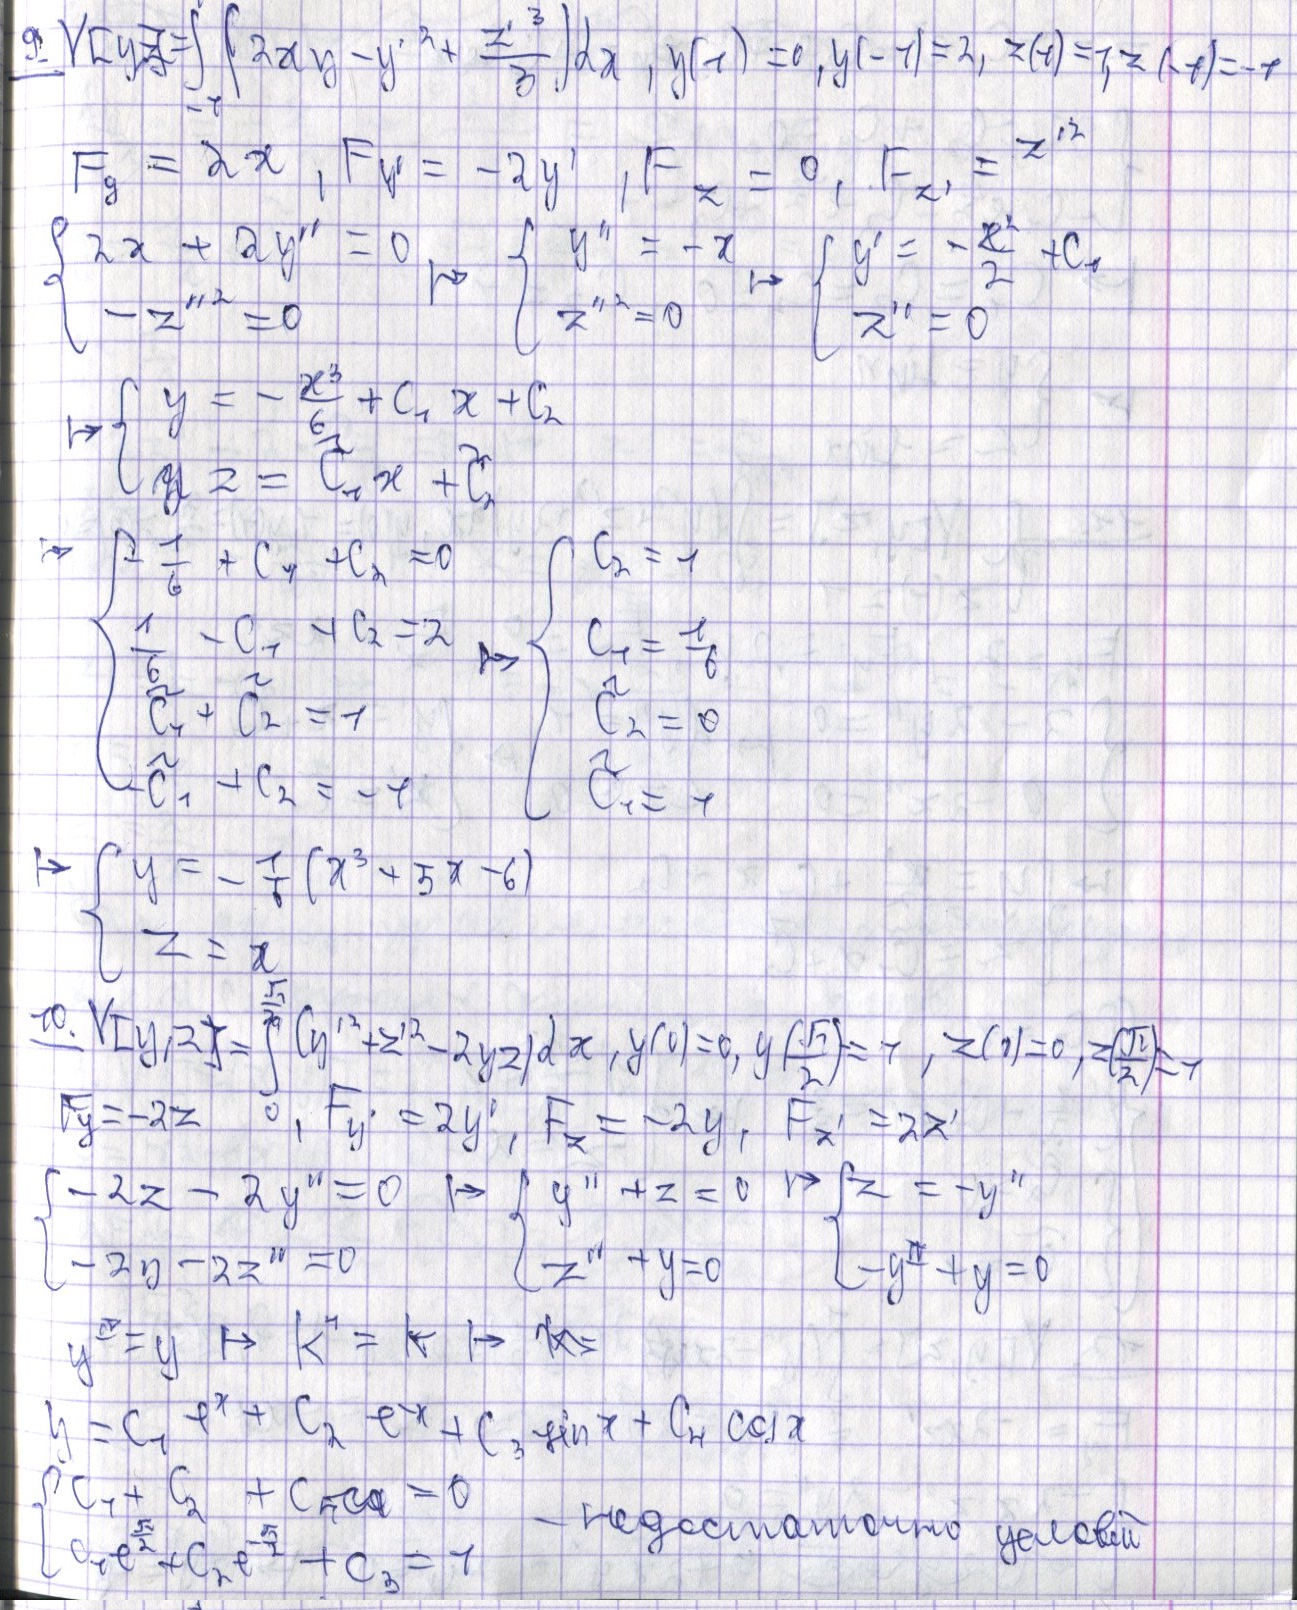 9. V[y,z]=∫₋₁¹(2xy-y'²+z'³/3)dx, y(1)=0, y(-1)=2, z(1)=1, z(-1)=-1
F_y = 2x, F_y' = -2y', F_z = 0, F_z' = z'²
{2x + 2y'' = 0 ↦ {y'' = -x ↦ {y' = -x²/2 + C₁
{-z''² = 0 {z''² = 0 {z'' = 0
↦ {y = -x³/6 + C₁x + C₂
{z = C̃₁x + C̃₂
↦ {-1/6 + C₁ + C₂ = 0 {C₂ = 1
{1/6 - C₁ + C₂ = 2 ↦ {C₁ = 1/6
{C̃₁ + C̃₂ = 1 {C̃₂ = 0
{-C̃₁ + C₂ = -1 {C̃₁ = 1
↦ {y = -1/6 (x³ + 5x - 6)
{z = x
10. V[y,z] = ∫₀^{π/2} (y'² + z'² - 2yz)dx, y(0)=0, y(π/2)=1, z(0)=0, z(π/2)=1
F_y = -2z, F_y' = 2y', F_z = -2y, F_z' = 2z'
{-2z - 2y'' = 0 ↦ {y'' + z = 0 ↦ {z = -y''
{-2y - 2z'' = 0 {z'' + y = 0 {-y^{IV} + y = 0
y^{IV} = y ↦ k⁴ = k ↦
y = C₁ e^x + C₂ e^{-x} + C₃ sin x + C₄ cos x
{C₁ + C₂ + C₄ = 0
{C₁e^{π/2} + C₂e^{-π/2} + C₃ = 1 - недостаточно условий